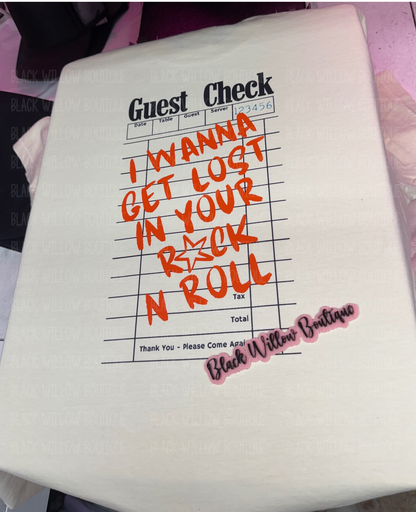 Guest Check
Date Table Guest Server 123456
I WANNA
GET LOST
IN YOUR
R☆CK
N ROLL
Tax
Total
Thank You - Please Come Again
Black Willow Boutique